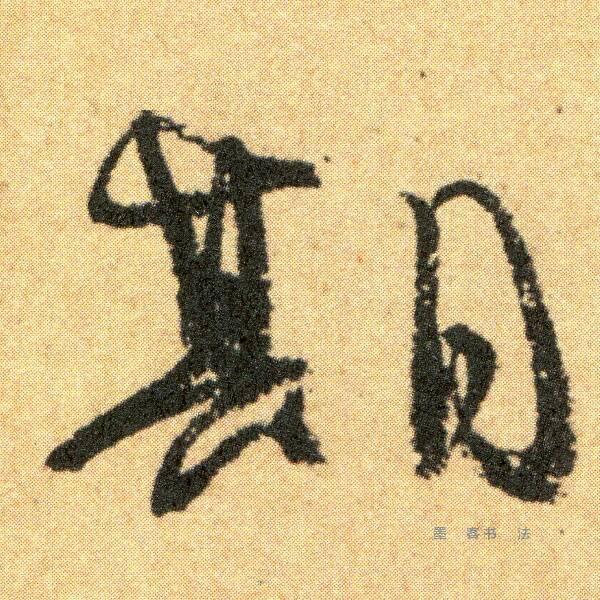 期
墨 客书 法